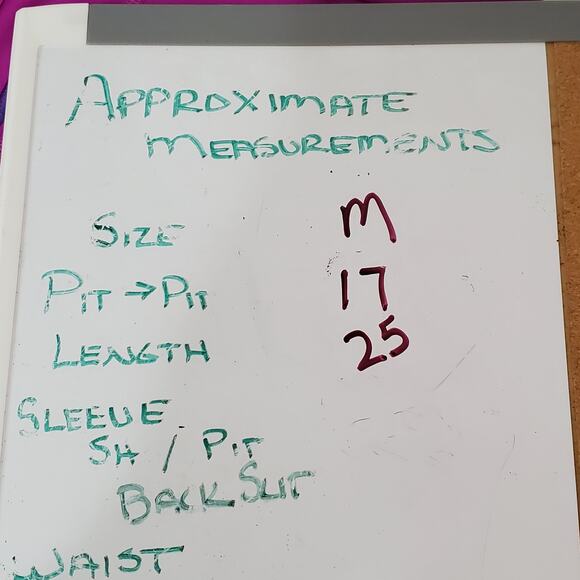 APPROXIMATE
MEASUREMENTS
SIZE M
PIT → PIT 17
LENGTH 25
SLEEVE
SH / PIT
BACK SLIT
WAIST